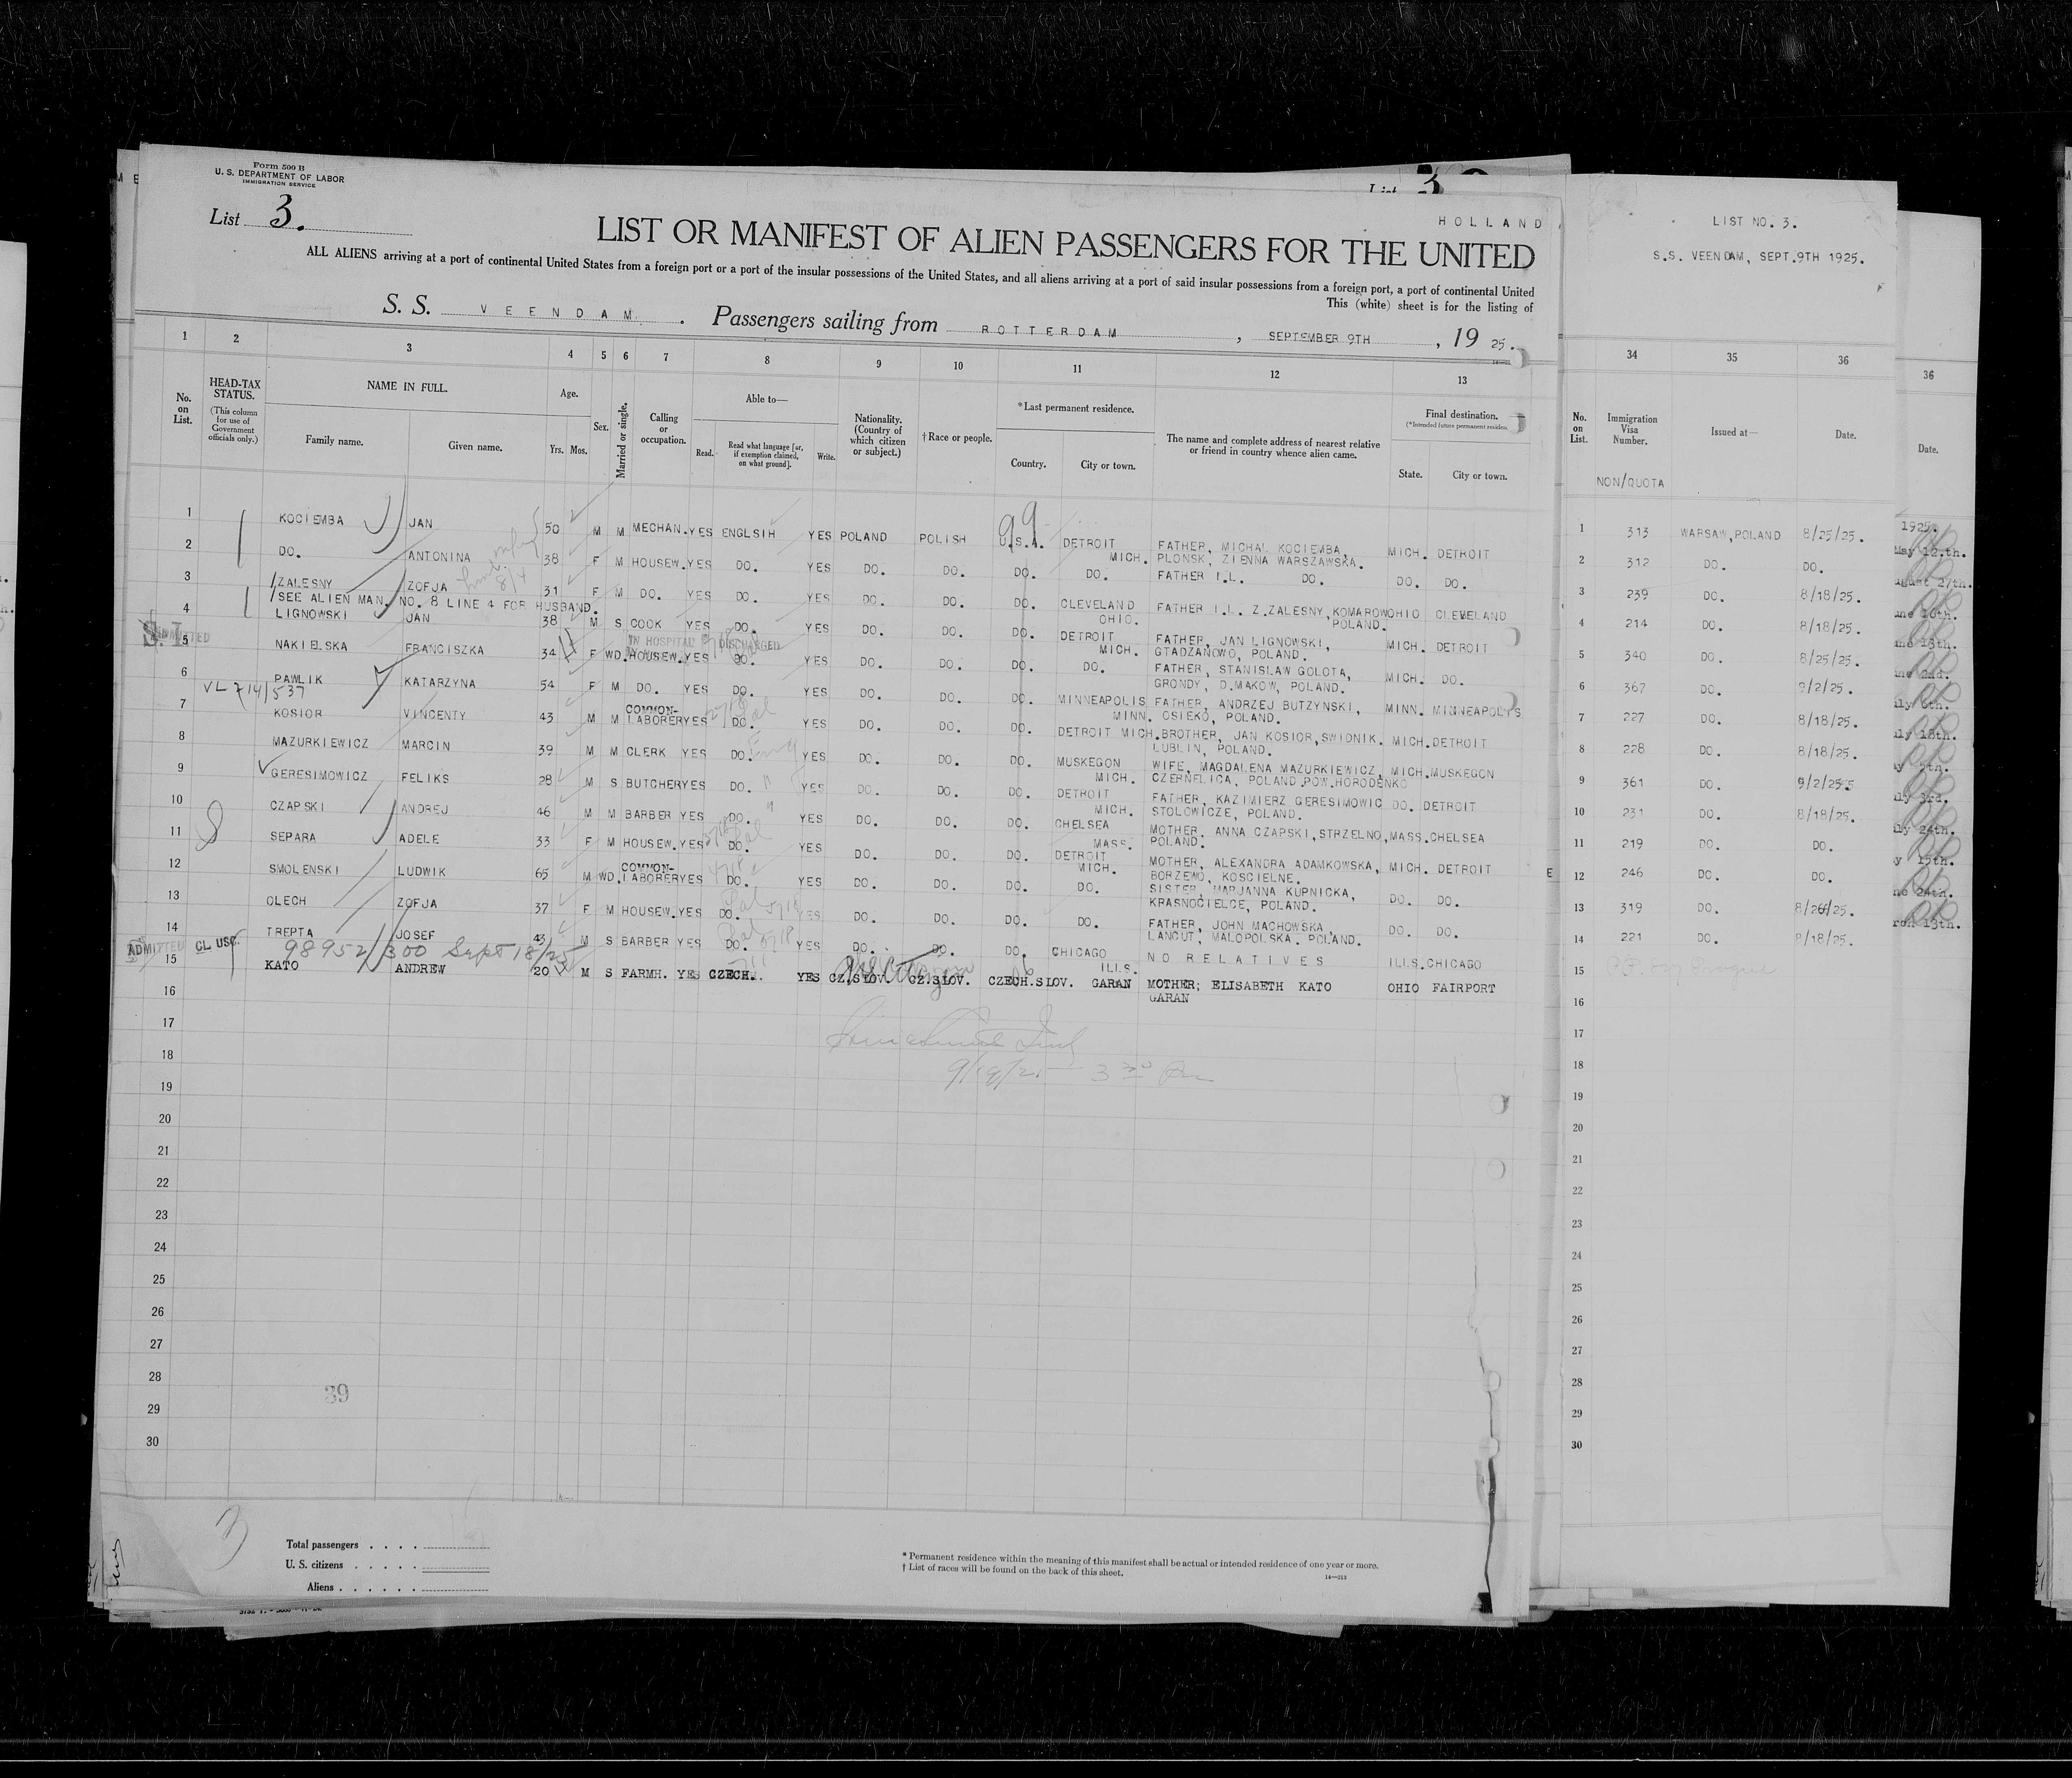 Form 500 B
U. S. DEPARTMENT OF LABOR
IMMIGRATION SERVICE
List 3.
HOLLAND
LIST OR MANIFEST OF ALIEN PASSENGERS FOR THE UNITED
ALL ALIENS arriving at a port of continental United States from a foreign port or a port of the insular possessions of the United States, and all aliens arriving at a port of said insular possessions from a foreign port, a port of continental United
This (white) sheet is for the listing of
S. S. VEENDAM. Passengers sailing from ROTTERDAM, SEPTEMBER 9TH, 19 25.
1 2 3 4 5 6 7 8 9 10 11 12 13
No. on List.
HEAD-TAX STATUS.
(This column for use of Government officials only.)
NAME IN FULL.
Family name. Given name.
Age.
Yrs. Mos.
Sex.
Married or single.
Calling or occupation.
Able to—
Read. Read what language [or, if exemption claimed, on what ground]. Write.
Nationality. (Country of which citizen or subject.)
†Race or people.
*Last permanent residence.
Country. City or town.
The name and complete address of nearest relative or friend in country whence alien came.
Final destination.
(*Intended future permanent residen
State. City or town.
1 KOCIEMBA JAN 50 M M MECHAN. YES ENGLSIH YES POLAND POLISH U.S.A. DETROIT MICH. FATHER, MICHAL KOCIEMBA, PLONSK, ZIENNA WARSZAWSKA. MICH. DETROIT
2 DO. ANTONINA 38 F M HOUSEW. YES DO. YES DO. DO. DO. DO. FATHER I.L. DO. DO. DO.
3 ZALESNY ZOFJA 31 F M DO. YES DO. YES DO. DO. DO. CLEVELAND OHIO. FATHER I.L. Z.ZALESNY, KOMAROW POLAND. OHIO CLEVELAND
SEE ALIEN MAN. NO. 8 LINE 4 FOR HUSBAND.
4 LIGNOWSKI JAN 38 M S COOK YES DO. YES DO. DO. DO. DETROIT MICH. FATHER, JAN LIGNOWSKI, GTADZANOWO, POLAND. MICH. DETROIT
S.I. ADMITTED
IN HOSPITAL DISCHARGED
5 NAKIELSKA FRANCISZKA 34 F WD. HOUSEW. YES DO. YES DO. DO. DO. DO. FATHER, STANISLAW GOLOTA, GRONDY, D.MAKOW, POLAND. MICH. DO.
6 PAWLIK KATARZYNA 54 F M DO. YES DO. YES DO. DO. DO. MINNEAPOLIS MINN. FATHER, ANDRZEJ BUTZYNSKI, OSIEKO, POLAND. MINN. MINNEAPOLIS
VL 714/537
7 KOSIOR VINCENTY 43 M M COMMON-LABORER YES DO. YES DO. DO. DO. DETROIT MICH. BROTHER, JAN KOSIOR, SWIDNIK. LUBLIN, POLAND. MICH. DETROIT
8 MAZURKIEWICZ MARCIN 39 M M CLERK YES DO. YES DO. DO. DO. MUSKEGON MICH. WIFE, MAGDALENA MAZURKIEWICZ, CZERNELICA, POLAND.POW.HORODENKO MICH. MUSKEGON
9 GERESIMOWICZ FELIKS 28 M S BUTCHER YES DO. YES DO. DO. DO. DETROIT MICH. FATHER, KAZIMIERZ GERESIMOWIC STOLOWICZE, POLAND. DO. DETROIT
10 CZAPSKI ANDREJ 46 M M BARBER YES DO. YES DO. DO. DO. CHELSEA MASS. MOTHER, ANNA CZAPSKI, STRZELNO, POLAND. MASS. CHELSEA
11 SEPARA ADELE 33 F M HOUSEW. YES DO. YES DO. DO. DO. DETROIT MICH. MOTHER, ALEXANDRA ADAMKOWSKA, BORZEWO, KOSCIELNE. MICH. DETROIT
12 SMOLENSKI LUDWIK 65 M WD. COMMON-LABORER YES DO. YES DO. DO. DO. DO. SISTER, MARJANNA KUPNICKA, KRASNOCIELCE, POLAND. DO. DO.
13 OLECH ZOFJA 37 F M HOUSEW. YES DO. YES DO. DO. DO. DO. FATHER, JOHN MACHOWSKA, LANCUT, MALOPOLSKA. POLAND. DO. DO.
14 TREPTA JOSEF 43 M S BARBER YES DO. YES DO. DO. DO. CHICAGO ILLS. NO RELATIVES ILLS. CHICAGO
ADMITTED CL USC. 98952/300 Sept 18/25
15 KATO ANDREW 20 M S FARMH. YES CZECH. YES CZ.SLOV. CZ.SLOV. CZECH.SLOV. GARAN MOTHER; ELISABETH KATO GARAN OHIO FAIRPORT
16
17
18
19
20
21
22
23
24
25
26
27
28
29
30
39
3
Total passengers
U. S. citizens
Aliens
* Permanent residence within the meaning of this manifest shall be actual or intended residence of one year or more.
† List of races will be found on the back of this sheet.
14—213
LIST NO. 3.
S.S. VEENDAM, SEPT.9TH 1925.
34 35 36
No. on List. Immigration Visa Number. Issued at— Date.
NON/QUOTA
1 313 WARSAW,POLAND 8/25/25.
2 312 DO. DO.
3 239 DO. 8/18/25.
4 214 DO. 8/18/25.
5 340 DO. 8/25/25.
6 367 DO. 9/2/25.
7 227 DO. 8/18/25.
8 228 DO. 8/18/25.
9 361 DO. 9/2/25
10 231 DO. 8/18/25.
11 219 DO. DO.
12 246 DO. DO.
13 319 DO. 8/26/25.
14 221 DO. 8/18/25.
15
16
17
18
19
20
21
22
23
24
25
26
27
28
29
30
36
Date.
1925.
May 12.th.